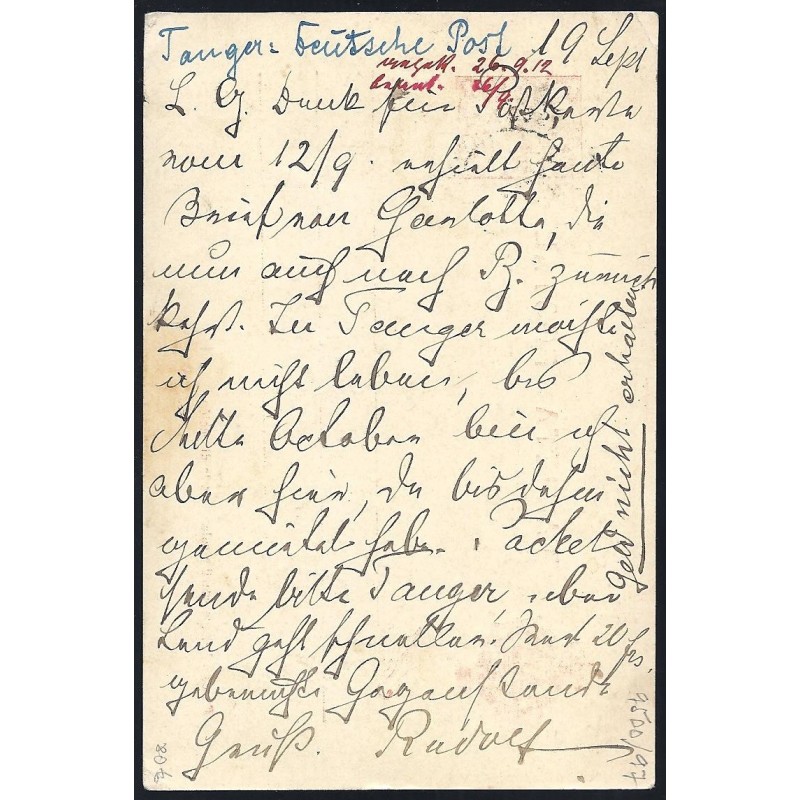 Tanger: Deutsche Post 19 Sept
erhalt. 26.9.12
beant. 26/9
L. G. Dank für Postkarte
vom 12/9. erhielt heute
Brief von Charlotte, die
nun auch nach P. zurück
kehrt. In Tanger möchte
ich nicht leben, bis
Mitte October bin ich
aber hier, da bis dahin
gemietet habe. Packet
sende bitte Tanger, über
Land geht schneller! Wert 20 frs.
gebrauchte Gegenstände
Gruß. Rudolf
Geld nicht erhalten
708
9500/97